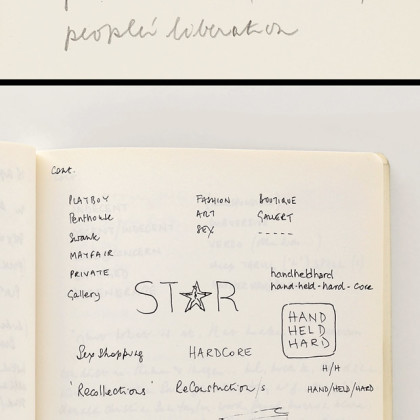 people's liberation
Cont.
PLAYBOY
Penthouse
Swank
MAYFAIR
PRIVATE
Gallery
FASHION BOUTIQUE
ART GALLERY
SEX -----
STAR
handheldhard
hand-held-hard-core
HAND
HELD
HARD
Sex Shopping HARDCORE
H/H
'Recollections' ReConstruction/s HAND/HELD/HARD